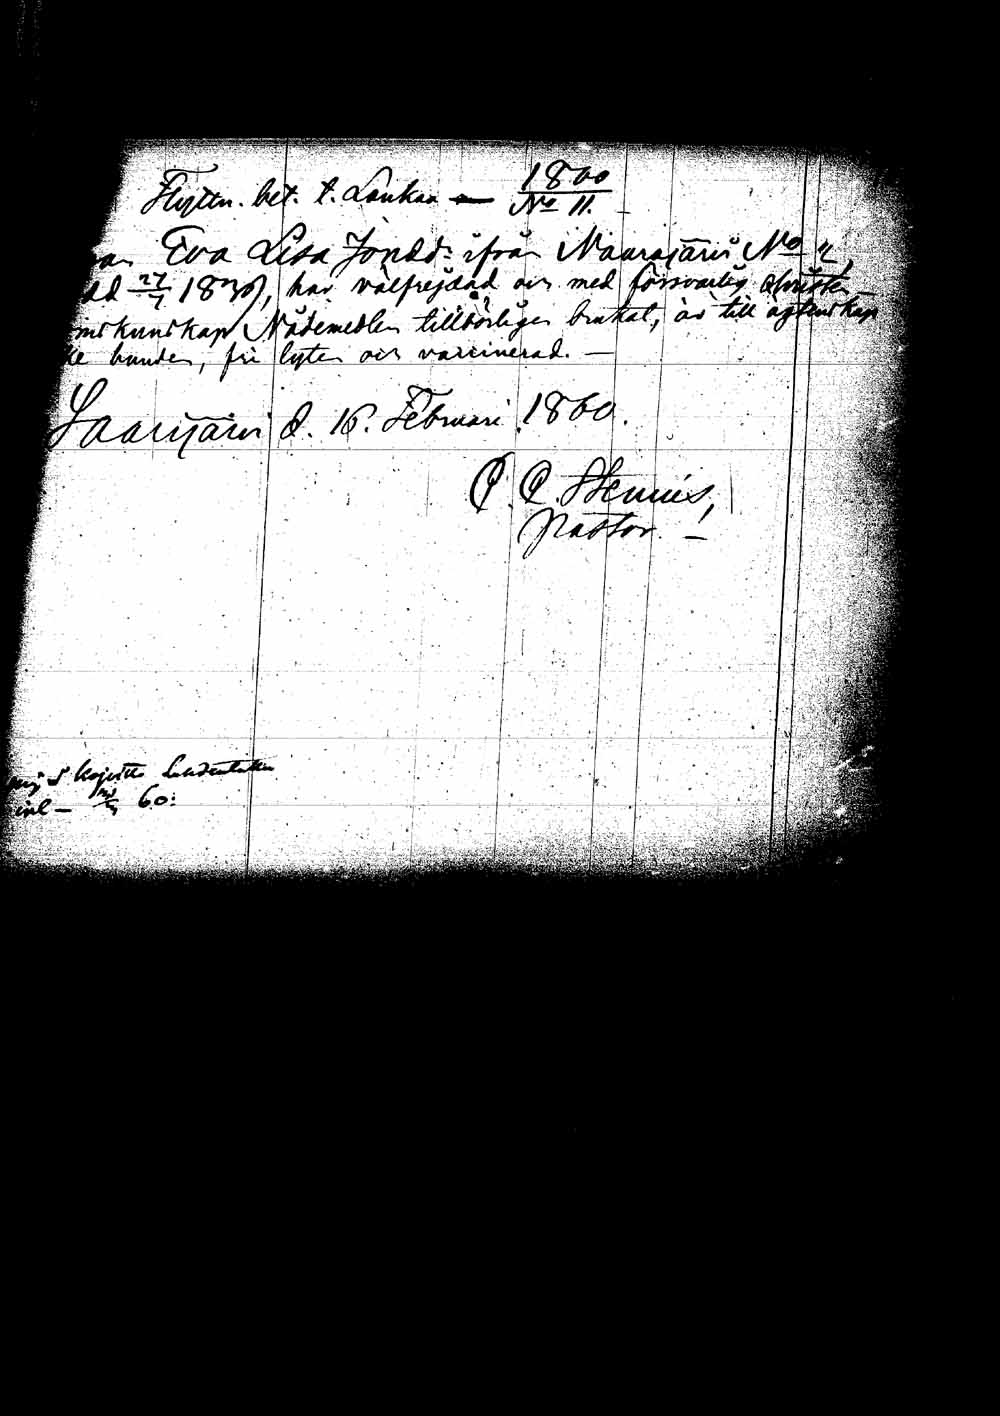 Flyttn. bet. t. Laukaa — 1860 / No 11. –
Eva Lisa Jonsd: ifrån Naarajärvi No 2,
27/7 1839, har välfrejdad och med försvarlig Christen-
domskunskap Nådemedlen tillbörligen brukat, är till ägtenskap
bunden, fri lyten och vaccinerad. —
Saarijärvi d. 16. Februari 1860.
C. C. Stenius,
Pastor. –
60: